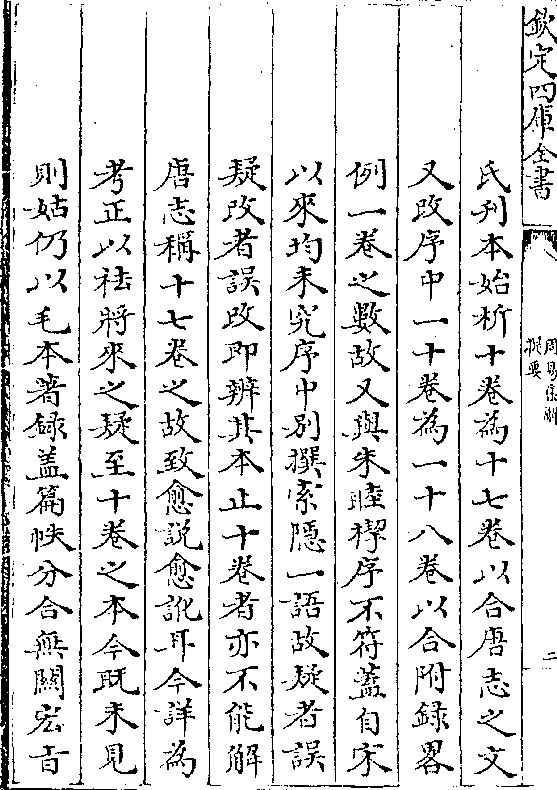 欽定四庫全書
周易集解
提要
二
氏刋本始析十卷為十七卷以合唐志之文
又改序中一十卷為一十八卷以合附録畧
例一卷之數故又與朱睦㮮序不符蓋自宋
以來均未究序中别撰索隱一語故疑者誤
疑改者誤改即辨其本止十卷者亦不能解
唐志稱十七卷之故致愈説愈訛耳今詳為
考正以祛將來之疑至十卷之本今既未見
則姑仍以毛本著録蓋篇帙分合無關宏旨